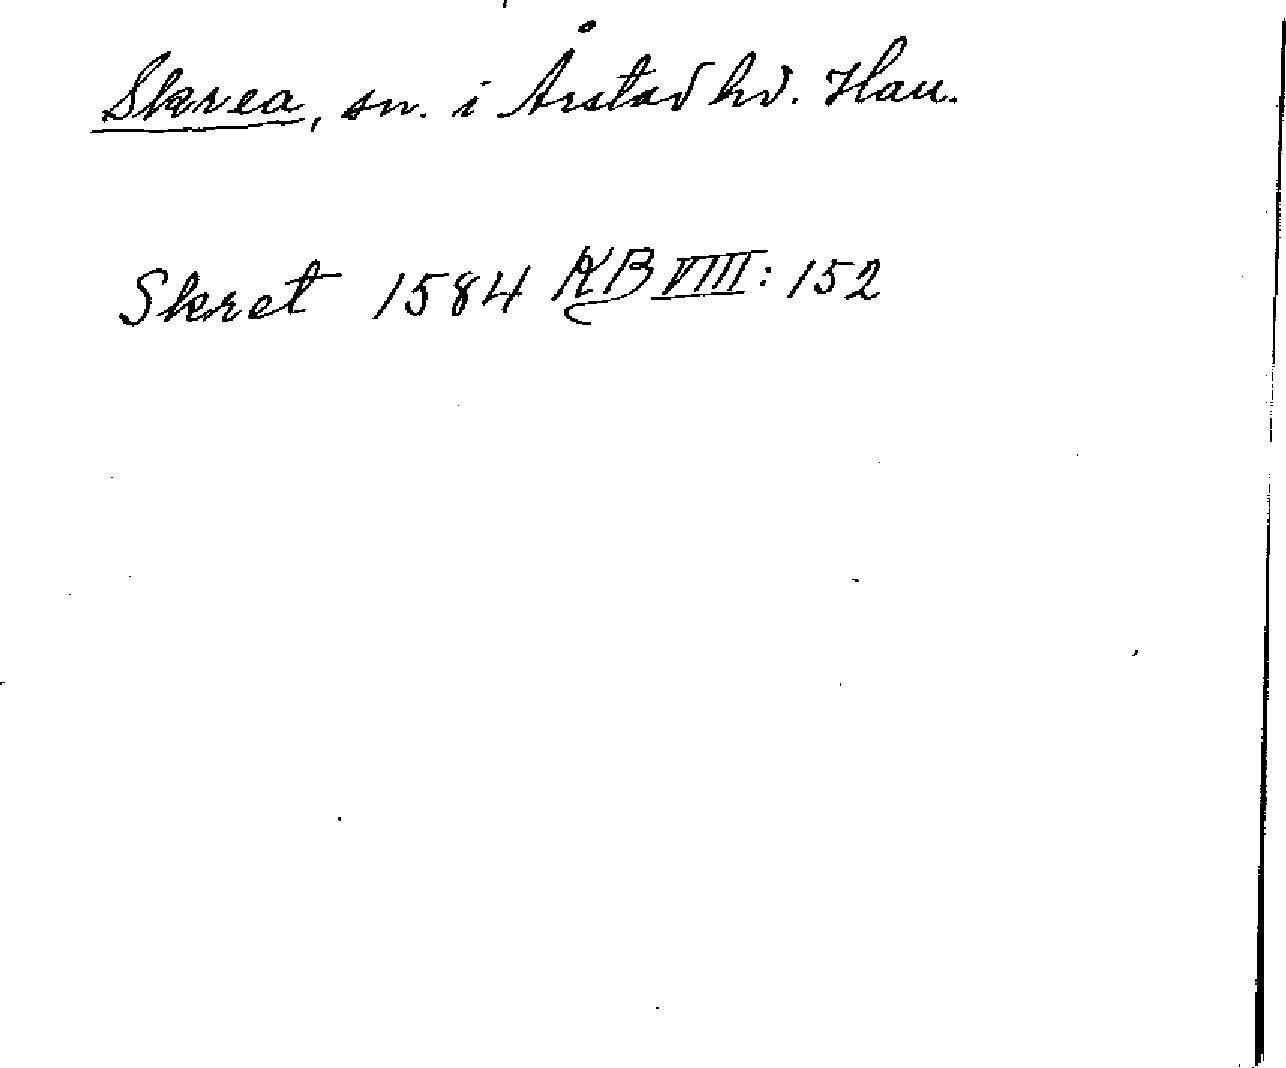 Skrea, sn. i Årstad hd. Hall.
Skret 1584 KB VIII: 152